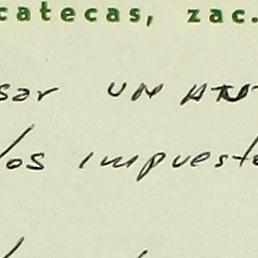 catecas, zac.
sar UN
los impuest